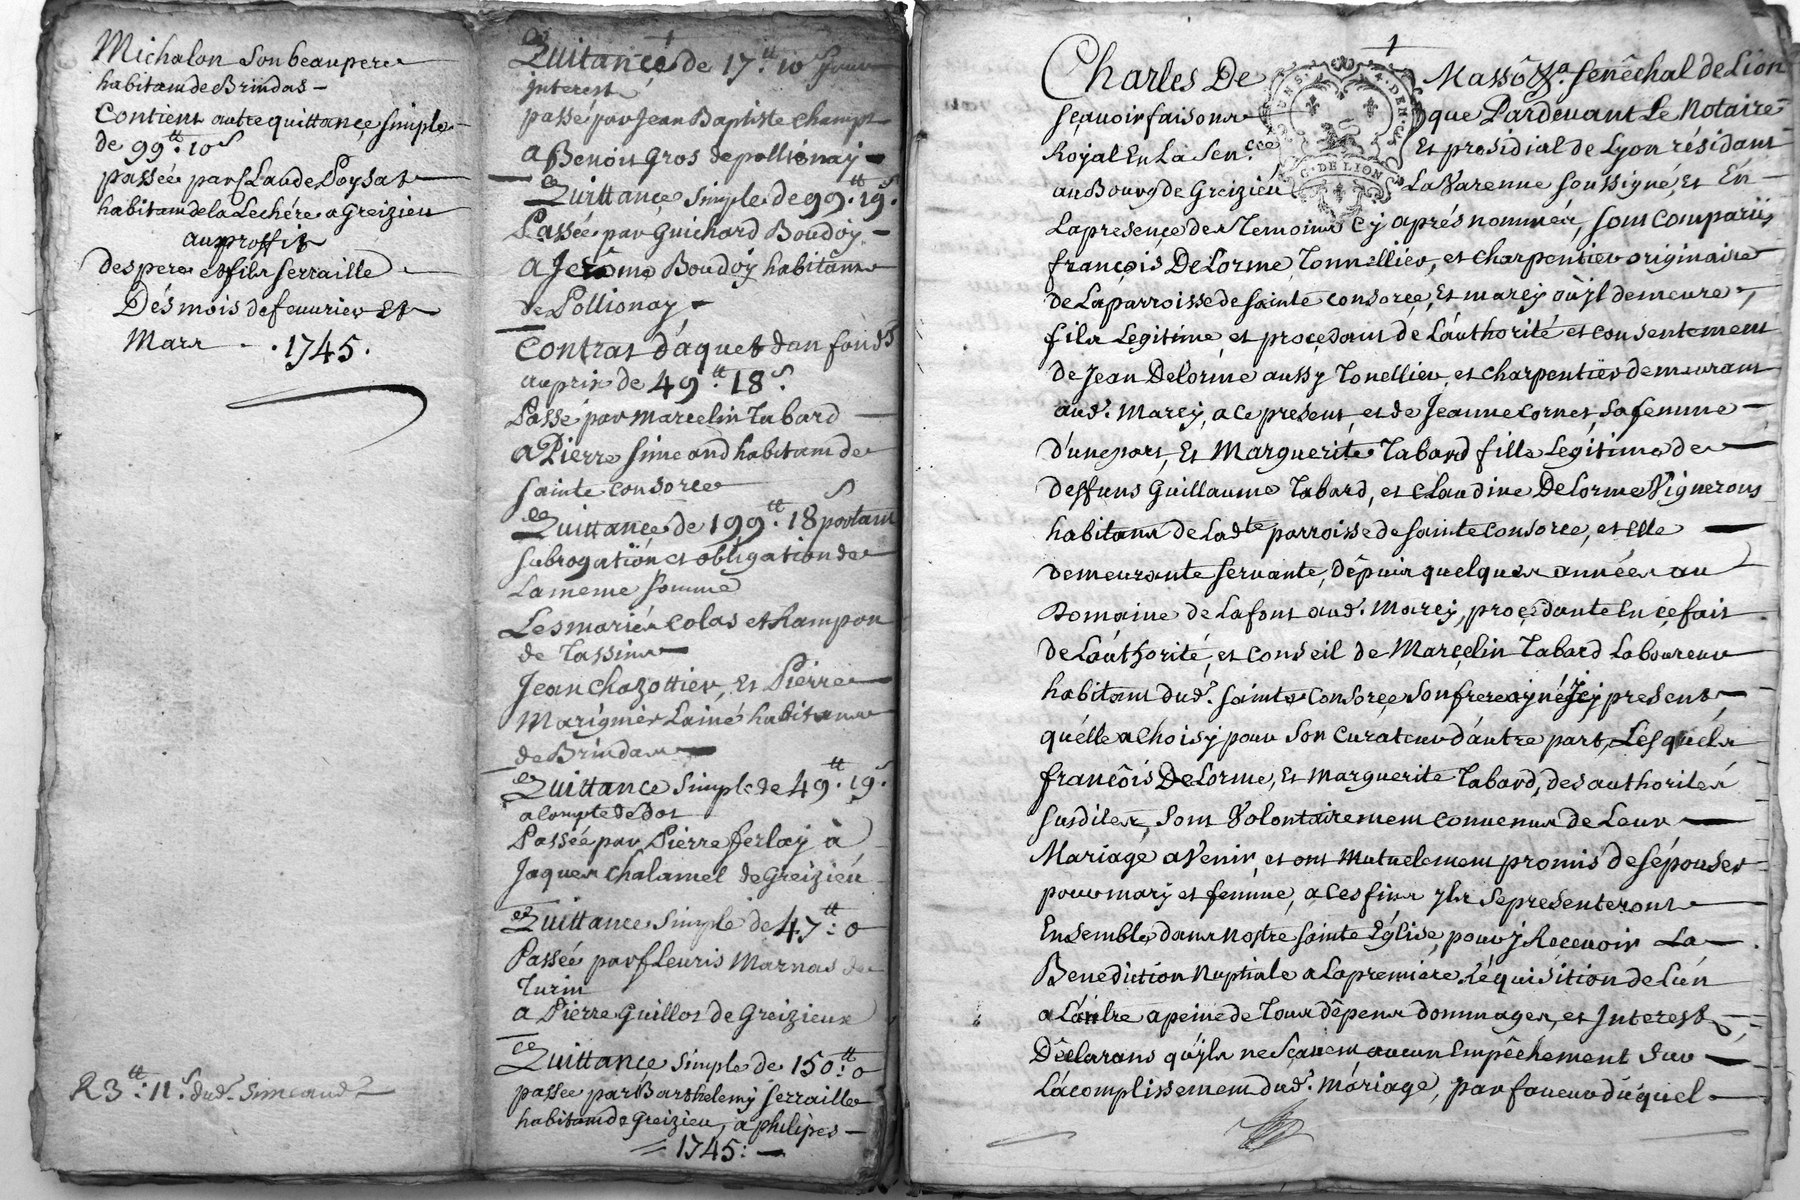 Michalon son beaupere
habitant de Brindas
Contient autre quittance simple
de 99tt. 10s
passée par Claude Poysat
habitant de la Lechére a Greizieu
au proffit
des pere et fils serraille
Dés mois de feuurier Et
Mars . 1745.
R 3tt. 11s. dud. Simeand
Quitance de 17tt. 10s pour
interest
passé par Jean Baptiste champt
a Benoit Gros de pollionaÿ
Quittance simple de 99tt. 19s.
Passée par Guichard Boudoÿ
a Jerôme Boudoÿ habitant
de Pollionay
Contrat d'aquet d'un fonds
au prix de 49tt 18s.
Passé par Marcelin Tabard
a Pierre Simeand habitant de
sainte consorce
Quittance de 199tt. 18s portant
subrogation et obligation de
La meme somme
Les mariés Colas et hampon
de Tassins
Jean chazottier, Et Pierre
Marignier Lainé habitans
de Brindas
Quittance simple de 49tt. 19s.
a Compte de Dot
Passée par Pierre ferlaÿ à
Jaques Chalamel de Greizieu
Quittance simple de 47tt: 0
Passée par fleuris Marnas de
Turin
a Pierre Guillot de Greizieux
Quittance simple de 150tt: 0
passée par Barthelemy serraille
habitant de Greizieu, a philipes
1745:
1
Charles De Massô Sa. senêchal de Lion
sçauoir faisons que Pardeuant Le Notaire
Royal En La Sencée Et presidial de Lyon résidant
au Bourg de Greizieu La Varenne soussigné, Et En
La presence des Temoins cy aprés nommés, sont comparus
françois DeLorme Tonnellier, et charpentier originaire
de La parroisse de sainte consorce, Et marcÿ où ÿl demeure,
fils Legitime, et proçedant de L'authorité et consentement
de Jean Delorme aussy Tonellier, et charpentier demeurant
aud. Marcÿ, a ce present, et de Jeanne Cornet, sa femme
D'une part, Et Marguerite Tabard fille Legitime de
deffuns Guillaume Tabard, et Claudine DeLorme Vignerons
habitans de Ladte parroisse de sainte consorce, et Elle
demeurante servante, dêpuis quelques années au
Domaine de Lafont aud. Marcÿ, proçedante En ce fait
de L'authorité, et conseil de Marçelin Tabard Laboureur
habitant dud. sainte consorçe son frere aÿné icy present,
qu'élle a choisÿ pour son curateur d'autre part, Lesquels
françois DeLorme, Et Marguerite Tabard, des authorités
susdites, sont Volontairement conuenus de Leur
Mariage a Venir, et ont mutuelement promis de s'épouser
pour mary et femme, a ces fins ÿls se presenteront
Ensemble dans nostre sainte Eglise, pour ÿ Receuoir La
Benediction Nuptiale a La premiere Réquisition de L'un
a L'autre a peine de Tous dêpens dommages, et Interest
Dêclarans qu'ÿls ne sçauent aucun Empêchement sur
L'acomplissement dud. mariage, par faueur duquel